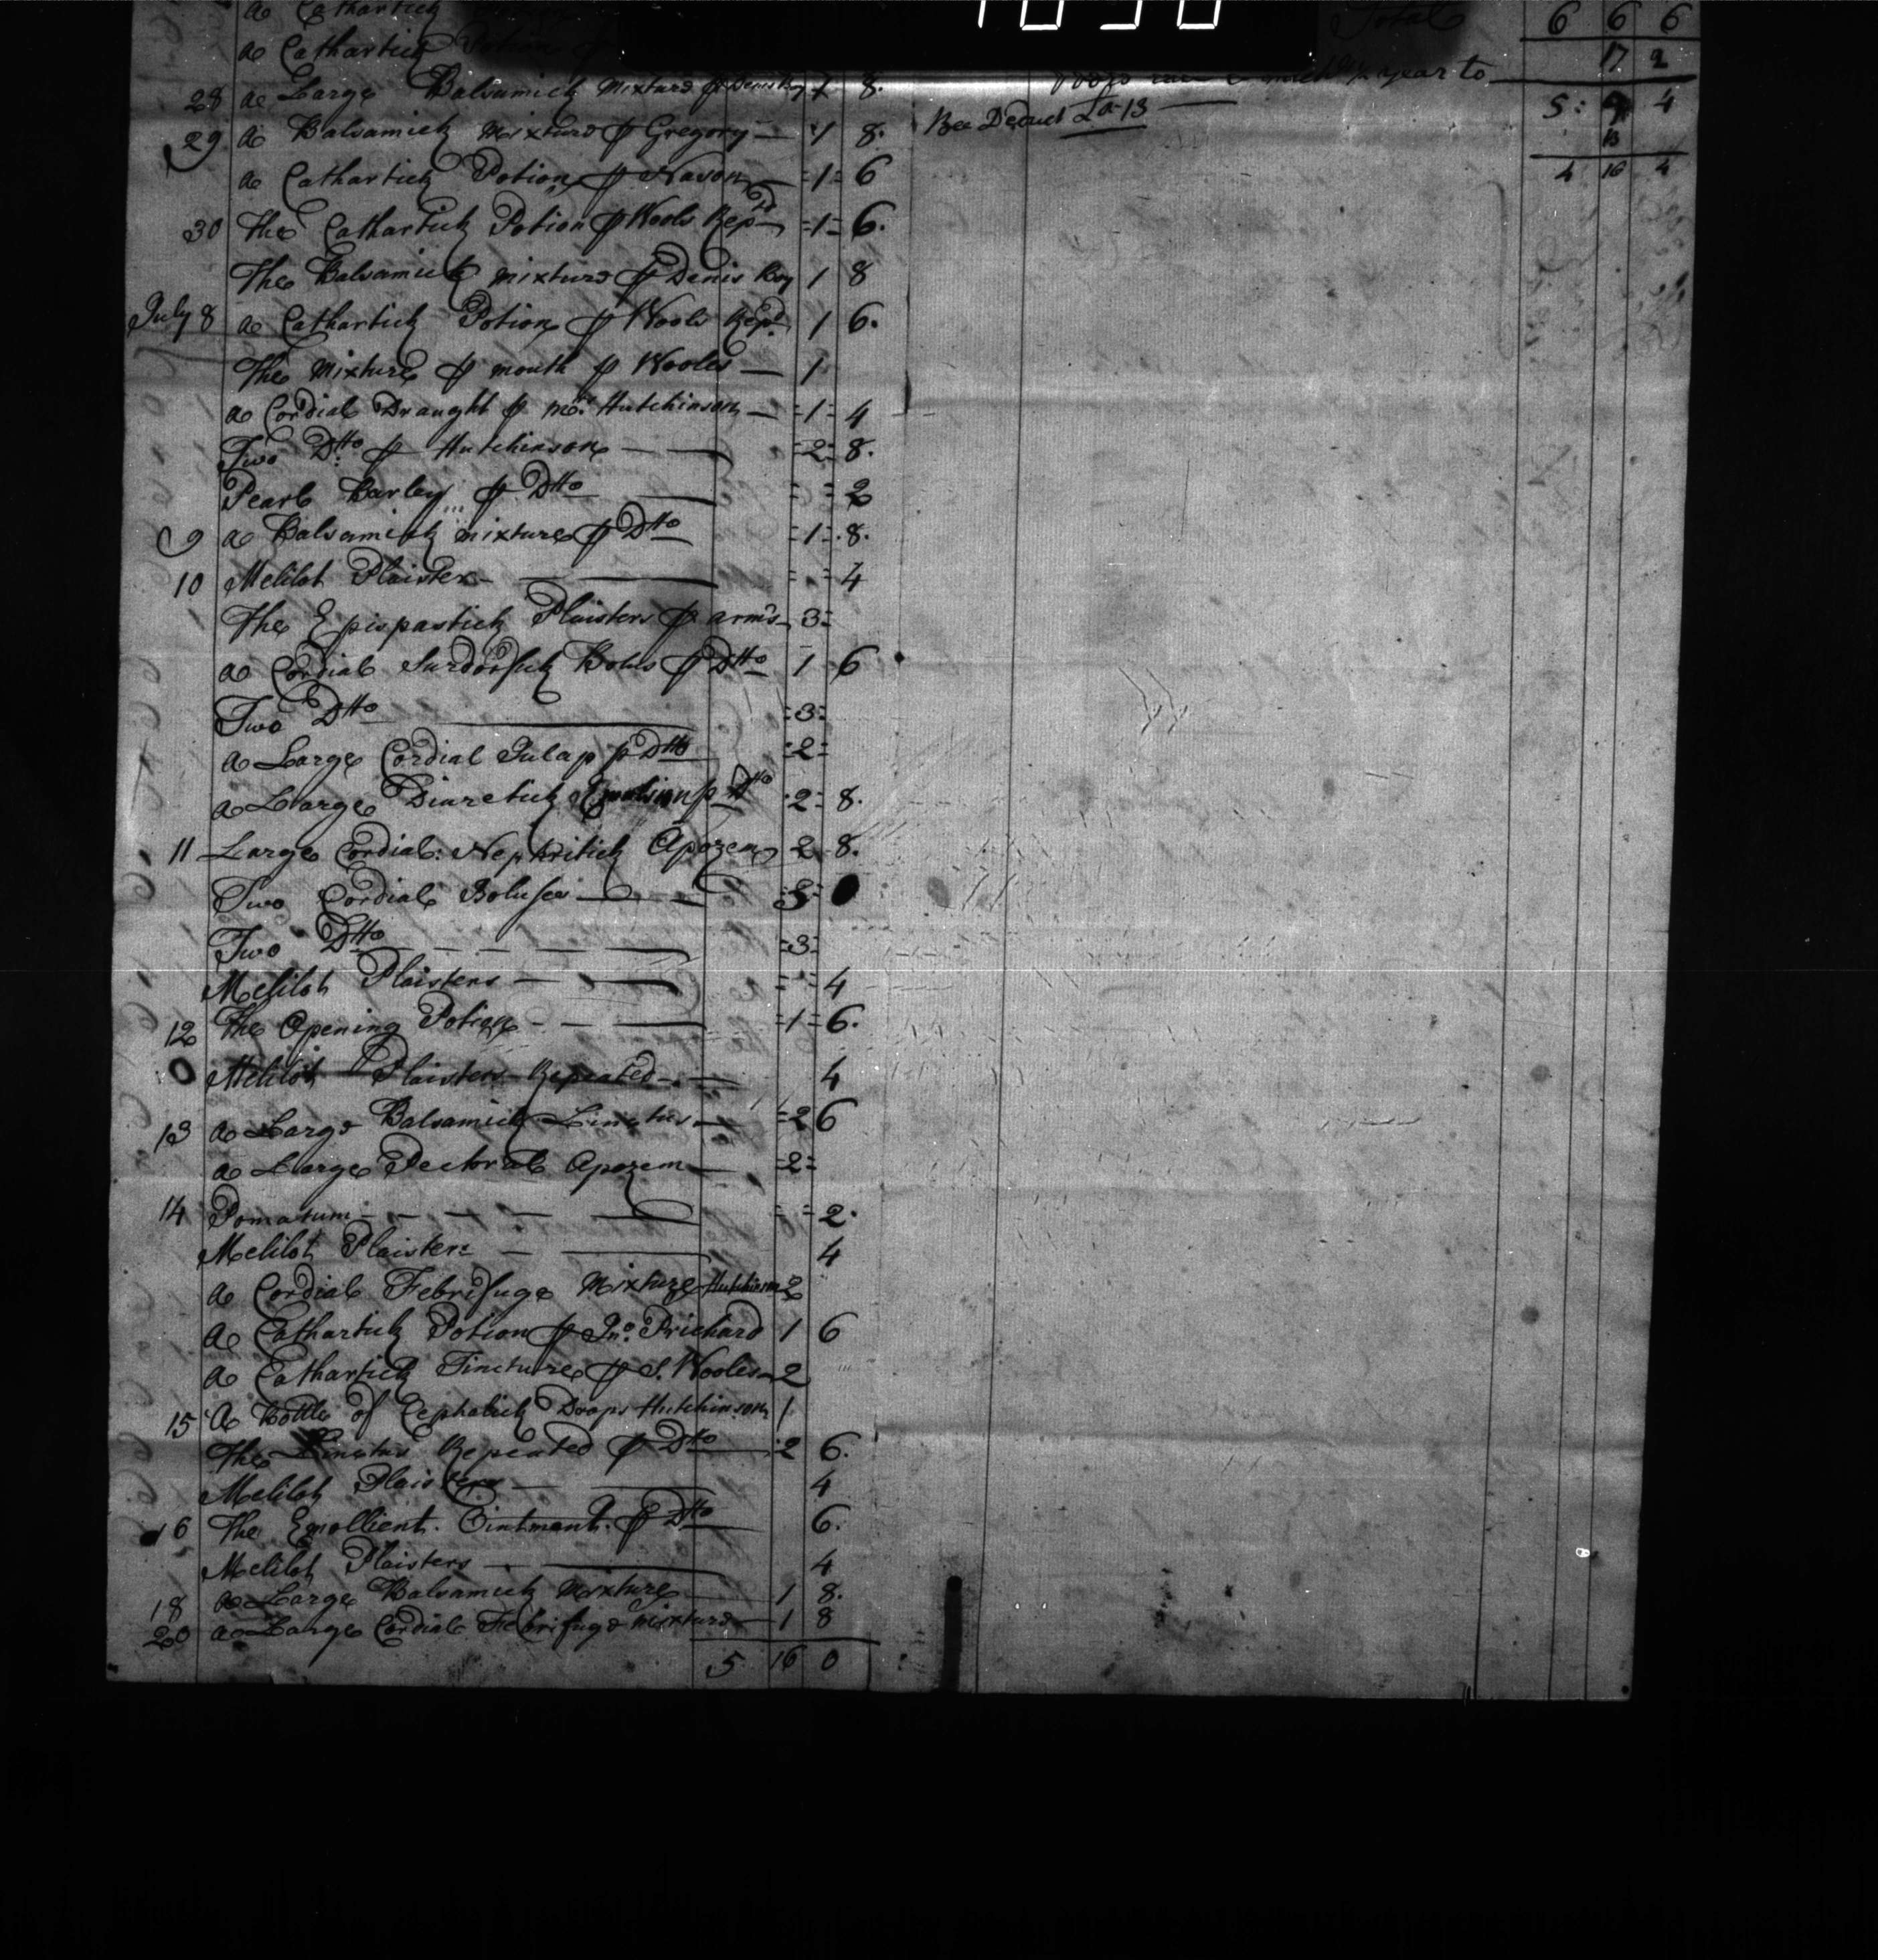 a Cathartick
a Cathartick Potion
28 a Large Balsamick Mixture p Denis Boy 1 8.
29 a Balsamick Mixture p Gregory 1 8.
a Cathartick Potion p Nason =1= 6
30 The Cathartick Potion p Wools Repd =1= 6.
The Balsamick mixture p Denis Boy 1 8
July 8 a Cathartick Potion p Wools Repd 1 6.
The Mixture p mouth p Wooles 1
a Cordial Draught p Mrs Hutchinson =1= 4
Two Dtto p Hutchinson =2= 8.
Pearl Barley p Dtto = = 2
9 a Balsamick mixture p Dtto =1= 8.
10 Melilot Plaister = = 4
The Epispastick Plaisters p arms 3=
a Cordial Sudorfick Bolus p Dtto 1 6
Two Dtto =3=
a Large Cordial Julap p Dtto =2=
a Large Diuretick Emulsion p Dtto =2= 8.
11 Large Cordial Nephritick Apozem 2 8.
Two Cordial Boluses =3=
Two Dtto =3=
Melilot Plaisters = = 4
12 The Opening Potion =1= 6.
Melilot Plaisters Repeated 4
13 a Large Balsamick Linctus =2 6
a Large Pectoral Apozem =2=
14 Pomatum = = 2.
Melilot Plaister 4
a Cordial Febrifuge Mixture Hutchinson 2
a Cathartick Potion p Jno. Prichard 1 6
a Cathartick Tincture p S. Wooles 2
15 A Bottle of Cephalick Drops Hutchinson 1
The Linctus Repeated p Dtto 2 6.
Melilot Plaisters 4
16 The Emollient Ointment p Dtto 6.
Melilot Plaisters 4
18 a Large Balsamick Mixture 1 8.
20 a Large Cordial Febrifuge Mixture 1 8
5 16 0
Total 6 6 6
year to 17 2
5: 9 4
Deduct 13
13
4 16 4